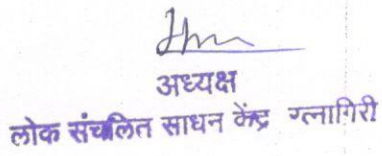 अध्यक्ष
लोक संचलित साधन केंद्र रत्नागिरी